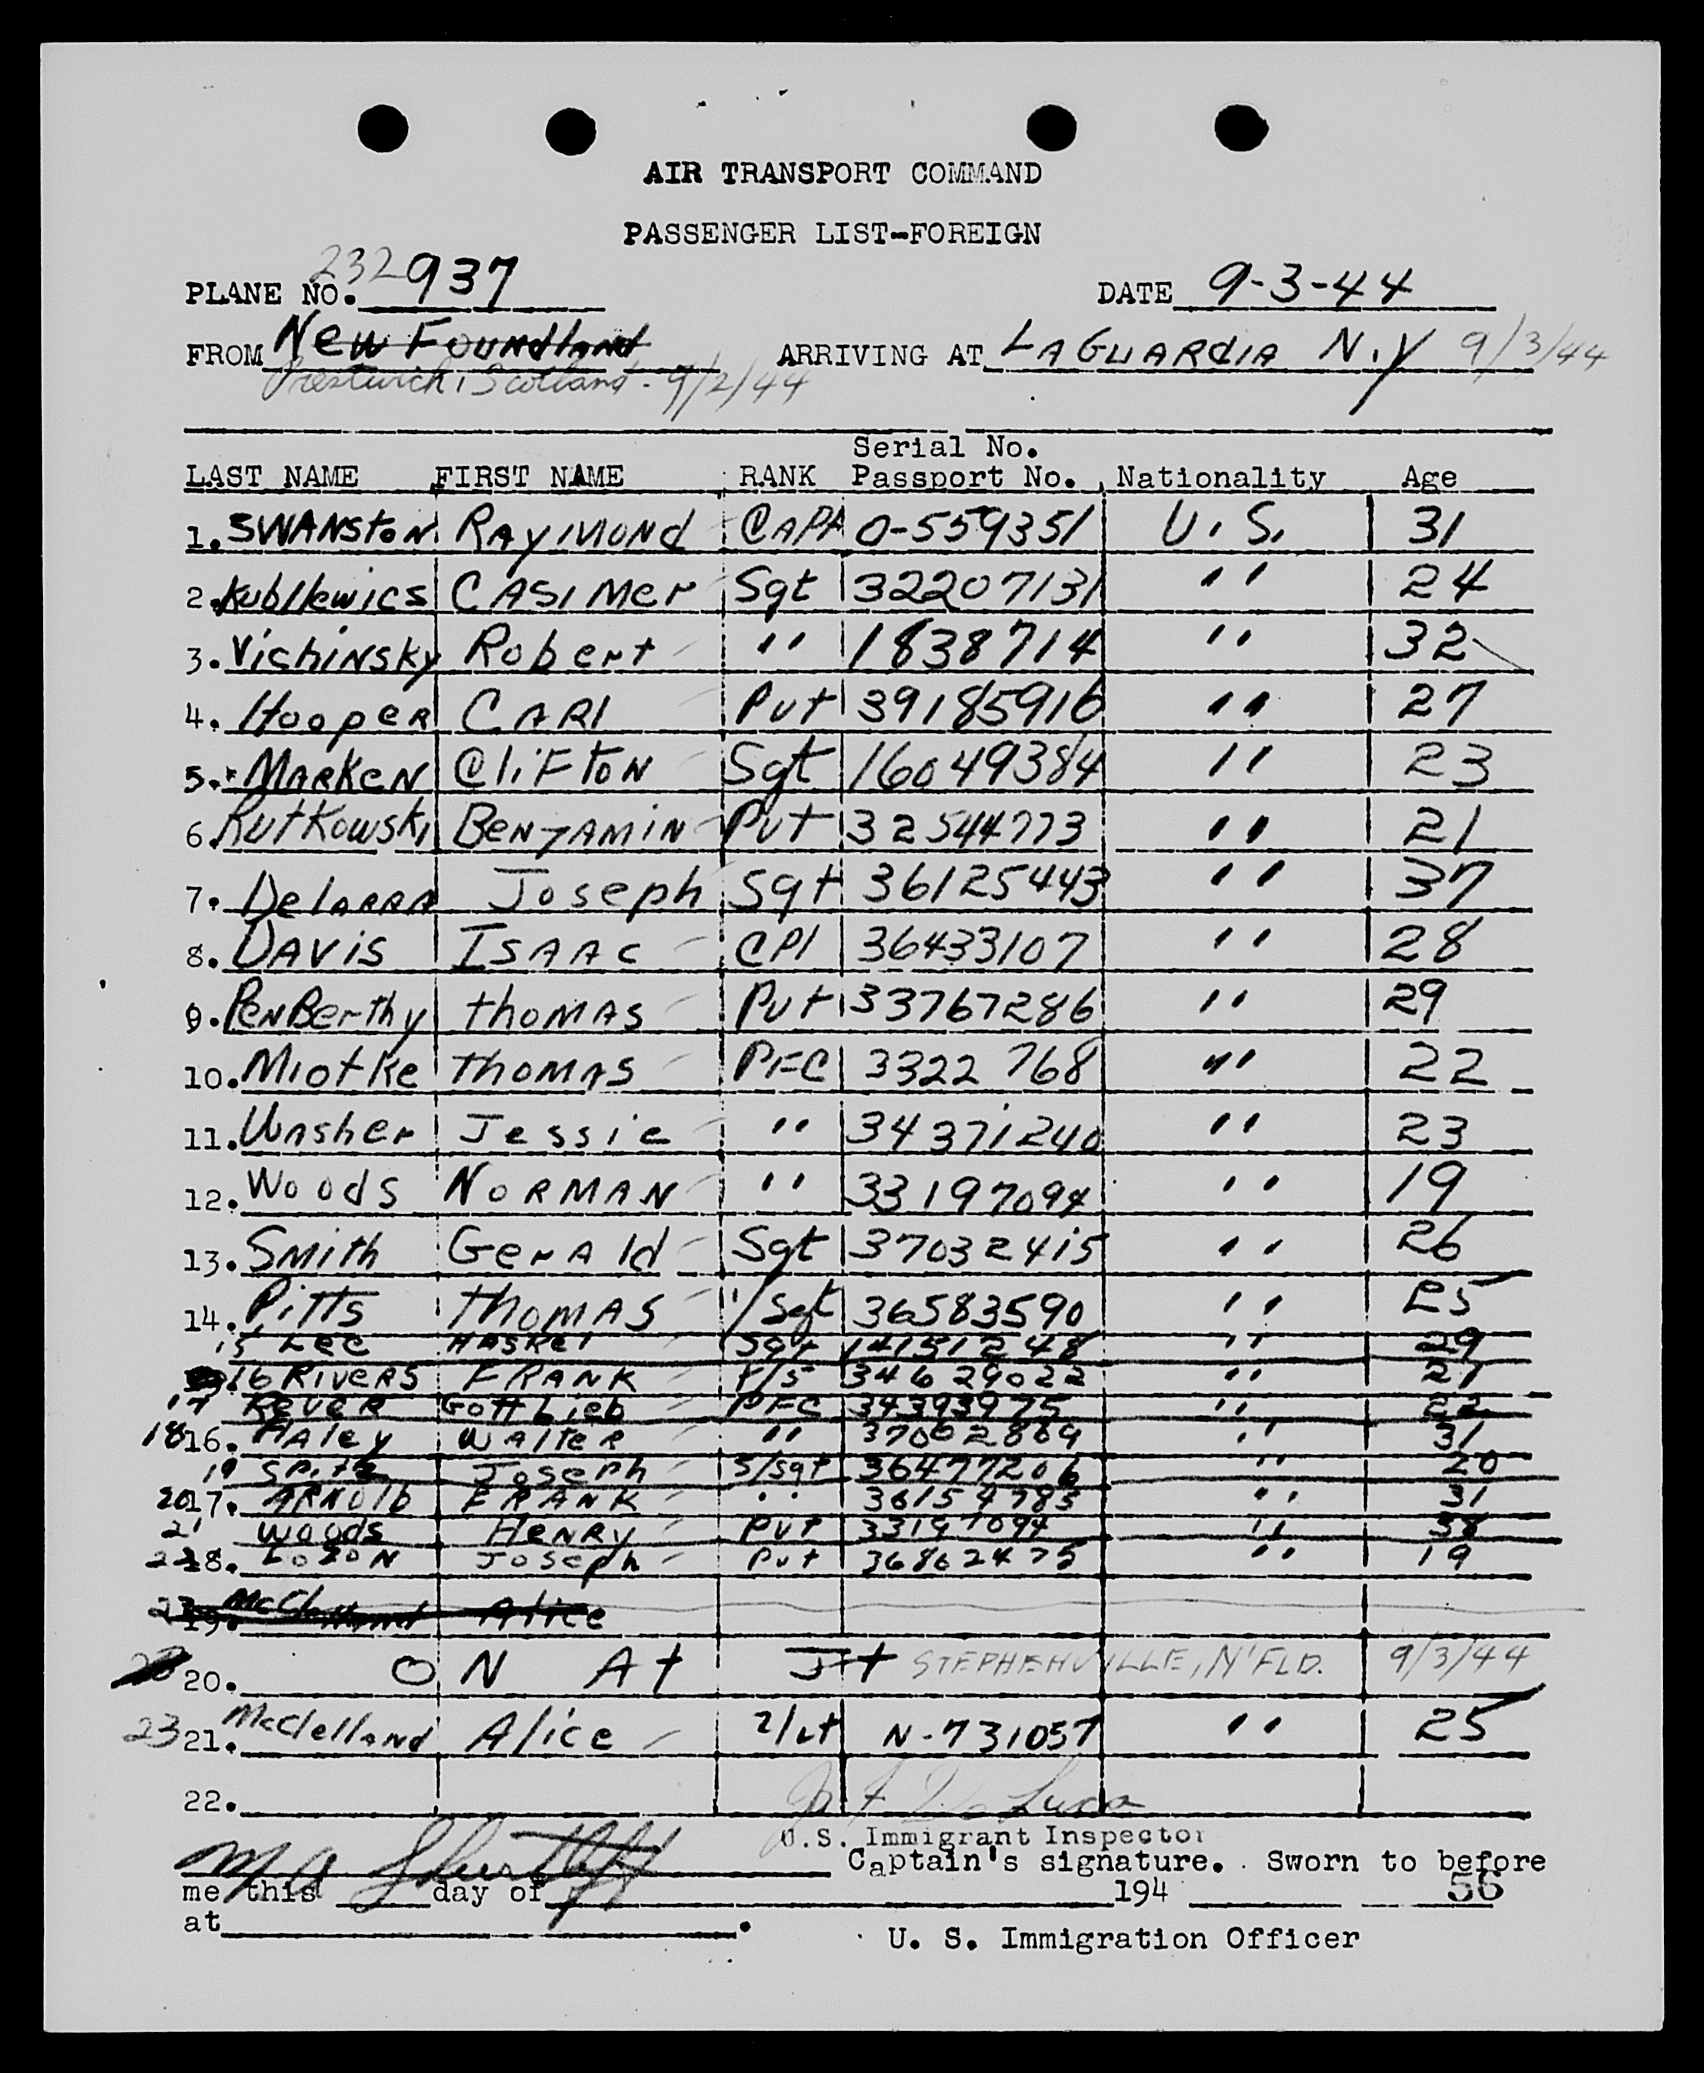 AIR TRANSPORT COMMAND
PASSENGER LIST-FOREIGN
PLANE NO. 232937 DATE 9-3-44
FROM New Foundland ARRIVING AT LAGUARdIA N.Y 9/3/44
Prestwich, Scotland. 9/2/44
Serial No.
LAST NAME FIRST NAME RANK Passport No. Nationality Age
1. SWANStoN RAyMONd CAPt 0-559351 U.S. 31
2. Kubllewics CASIMer Sgt 32207131 " 24
3. VichiNsky Robert " 1838714 " 32
4. HoopeR CARl Pvt 39185916 " 27
5. MARKeN CliFtoN Sgt 16049384 " 23
6. Rutkowski BeNJAMiN Pvt 32544773 " 21
7. DelARRA Joseph Sgt 36125443 " 37
8. DAViS ISAAC CPl 36433107 " 28
9. PeNBerthy thoMAS Pvt 33767286 " 29
10. Miotke thoMAS PFC 3322 768 " 22
11. WAsher Jessie " 34371240 " 23
12. Woods NORMAN " 33197094 " 19
13. SMith GerAld Sgt 37032415 " 26
14. Pitts thoMAS 36583590 " 25
15 Lee HASKel Sgt 14151248 " 29
16 RiveRS FRANK 34629022 " 21
17 ReveR Gottlieb PFC 34393975 " 22
18 16. HAley WAlteR " 37002869 " 31
19 Spitz Joseph S/Sgt 36477206 " 20
20 17. ARNOld FRANK " 36154785 " 31
21 Woods HeNRy Pvt 33197094 " 38
22 18. LozoN Joseph Pvt 36862475 " 19
23 19. McClelland Alice
20. ON At Jt STEPHENVILLE, N'FLD. 9/3/44
23 21. McClellaNd Alice 2/Lt N-731057 " 25
22.
U.S. Immigrant Inspector
M A Shurtleff Captain's signature. Sworn to before
me this day of 194 56
at .
U. S. Immigration Officer